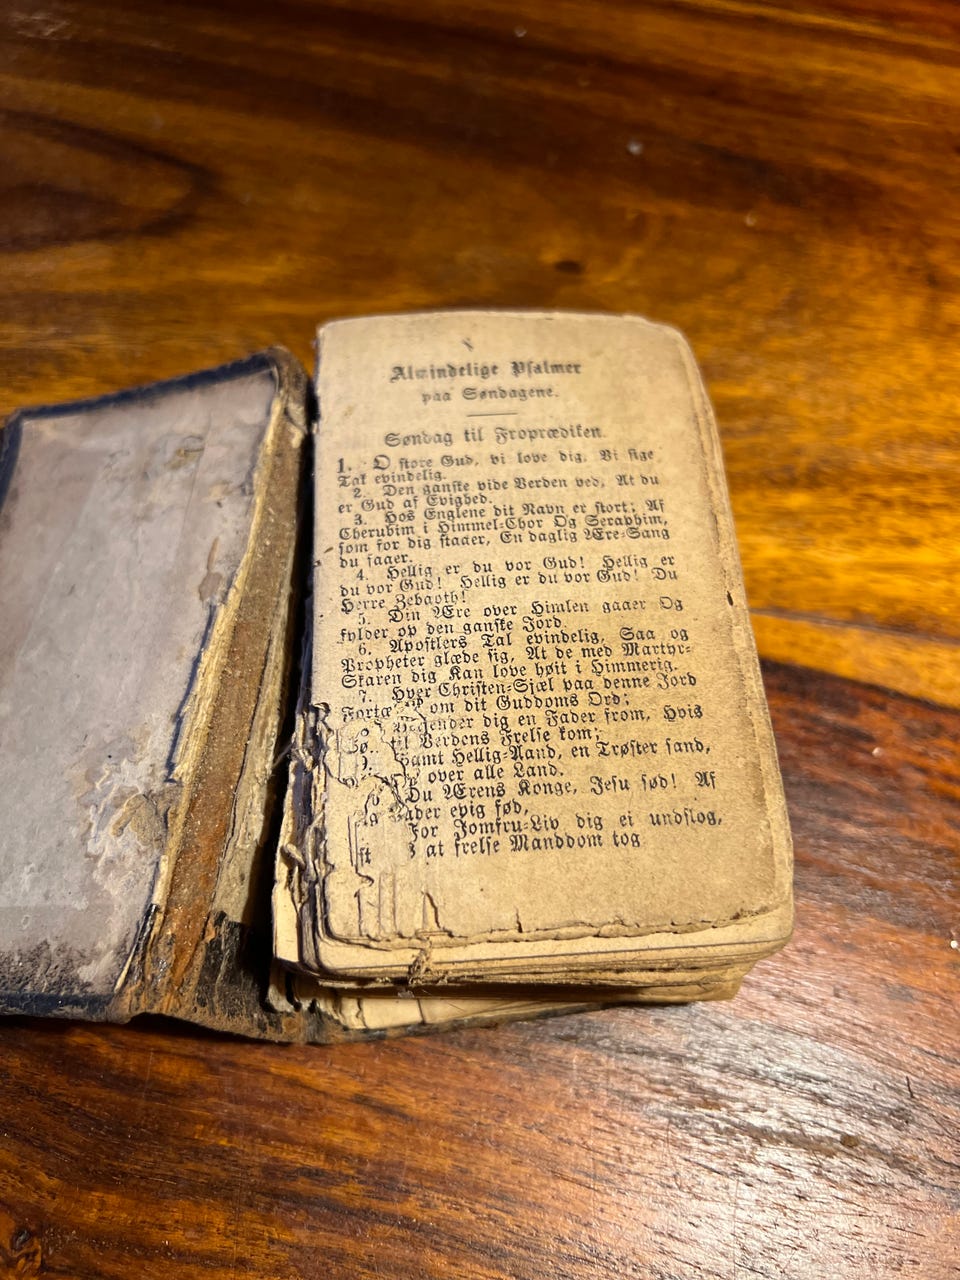 Almindelige Psalmer
paa Søndagene.
Søndag til Froprædiken.
1. O store Gud, vi love dig, Vi sige
Tak evindelig.
2. Den ganske vide Verden ved, At du
er Gud af Evighed.
3. Hos Englene dit Navn er stort; Af
Cherubim i Himmel-Chor Og Seraphim,
som for dig staaer, En daglig Ære-Sang
du faaer.
4. Hellig er du vor Gud! Hellig er
du vor Gud! Hellig er du vor Gud! Du
Herre Zebaoth!
5. Din Ære over Himlen gaaer Og
fylder op den ganske Jord.
6. Apostlers Tal evindelig, Saa og
Propheter glæde sig, At de med Martyr-
Skaren dig Kan love høit i Himmerig.
7. Hver Christen-Sjæl paa denne Jord
om dit Guddoms Ord;
dig en Fader from, Hvis
til Verdens Frelse kom;
Samt Hellig-Aand, en Trøster sand,
over alle Land.
Du Ærens Konge, Jesu sød! Af
evig fød,
For Jomfru-Liv dig ei undslog,
at frelse Manddom tog